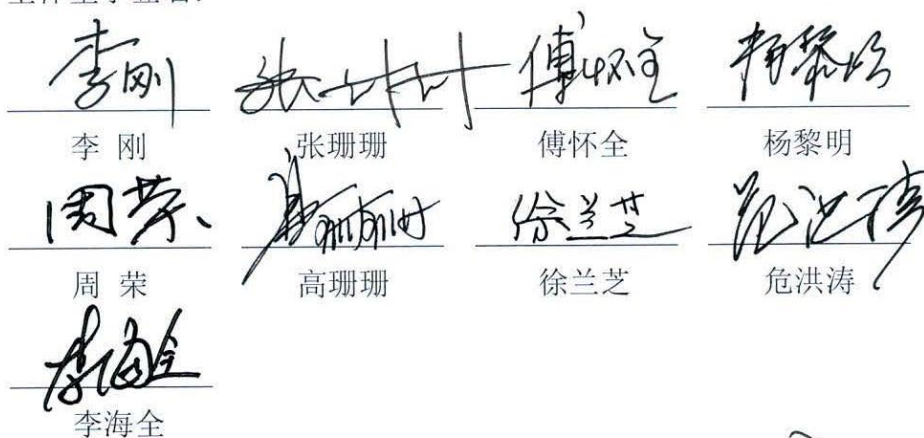 李刚 张珊珊 傅怀全 杨黎明
李 刚 张珊珊 傅怀全 杨黎明
周荣 高珊珊 徐兰芝 危洪涛
周 荣 高珊珊 徐兰芝 危洪涛
李海全
李海全